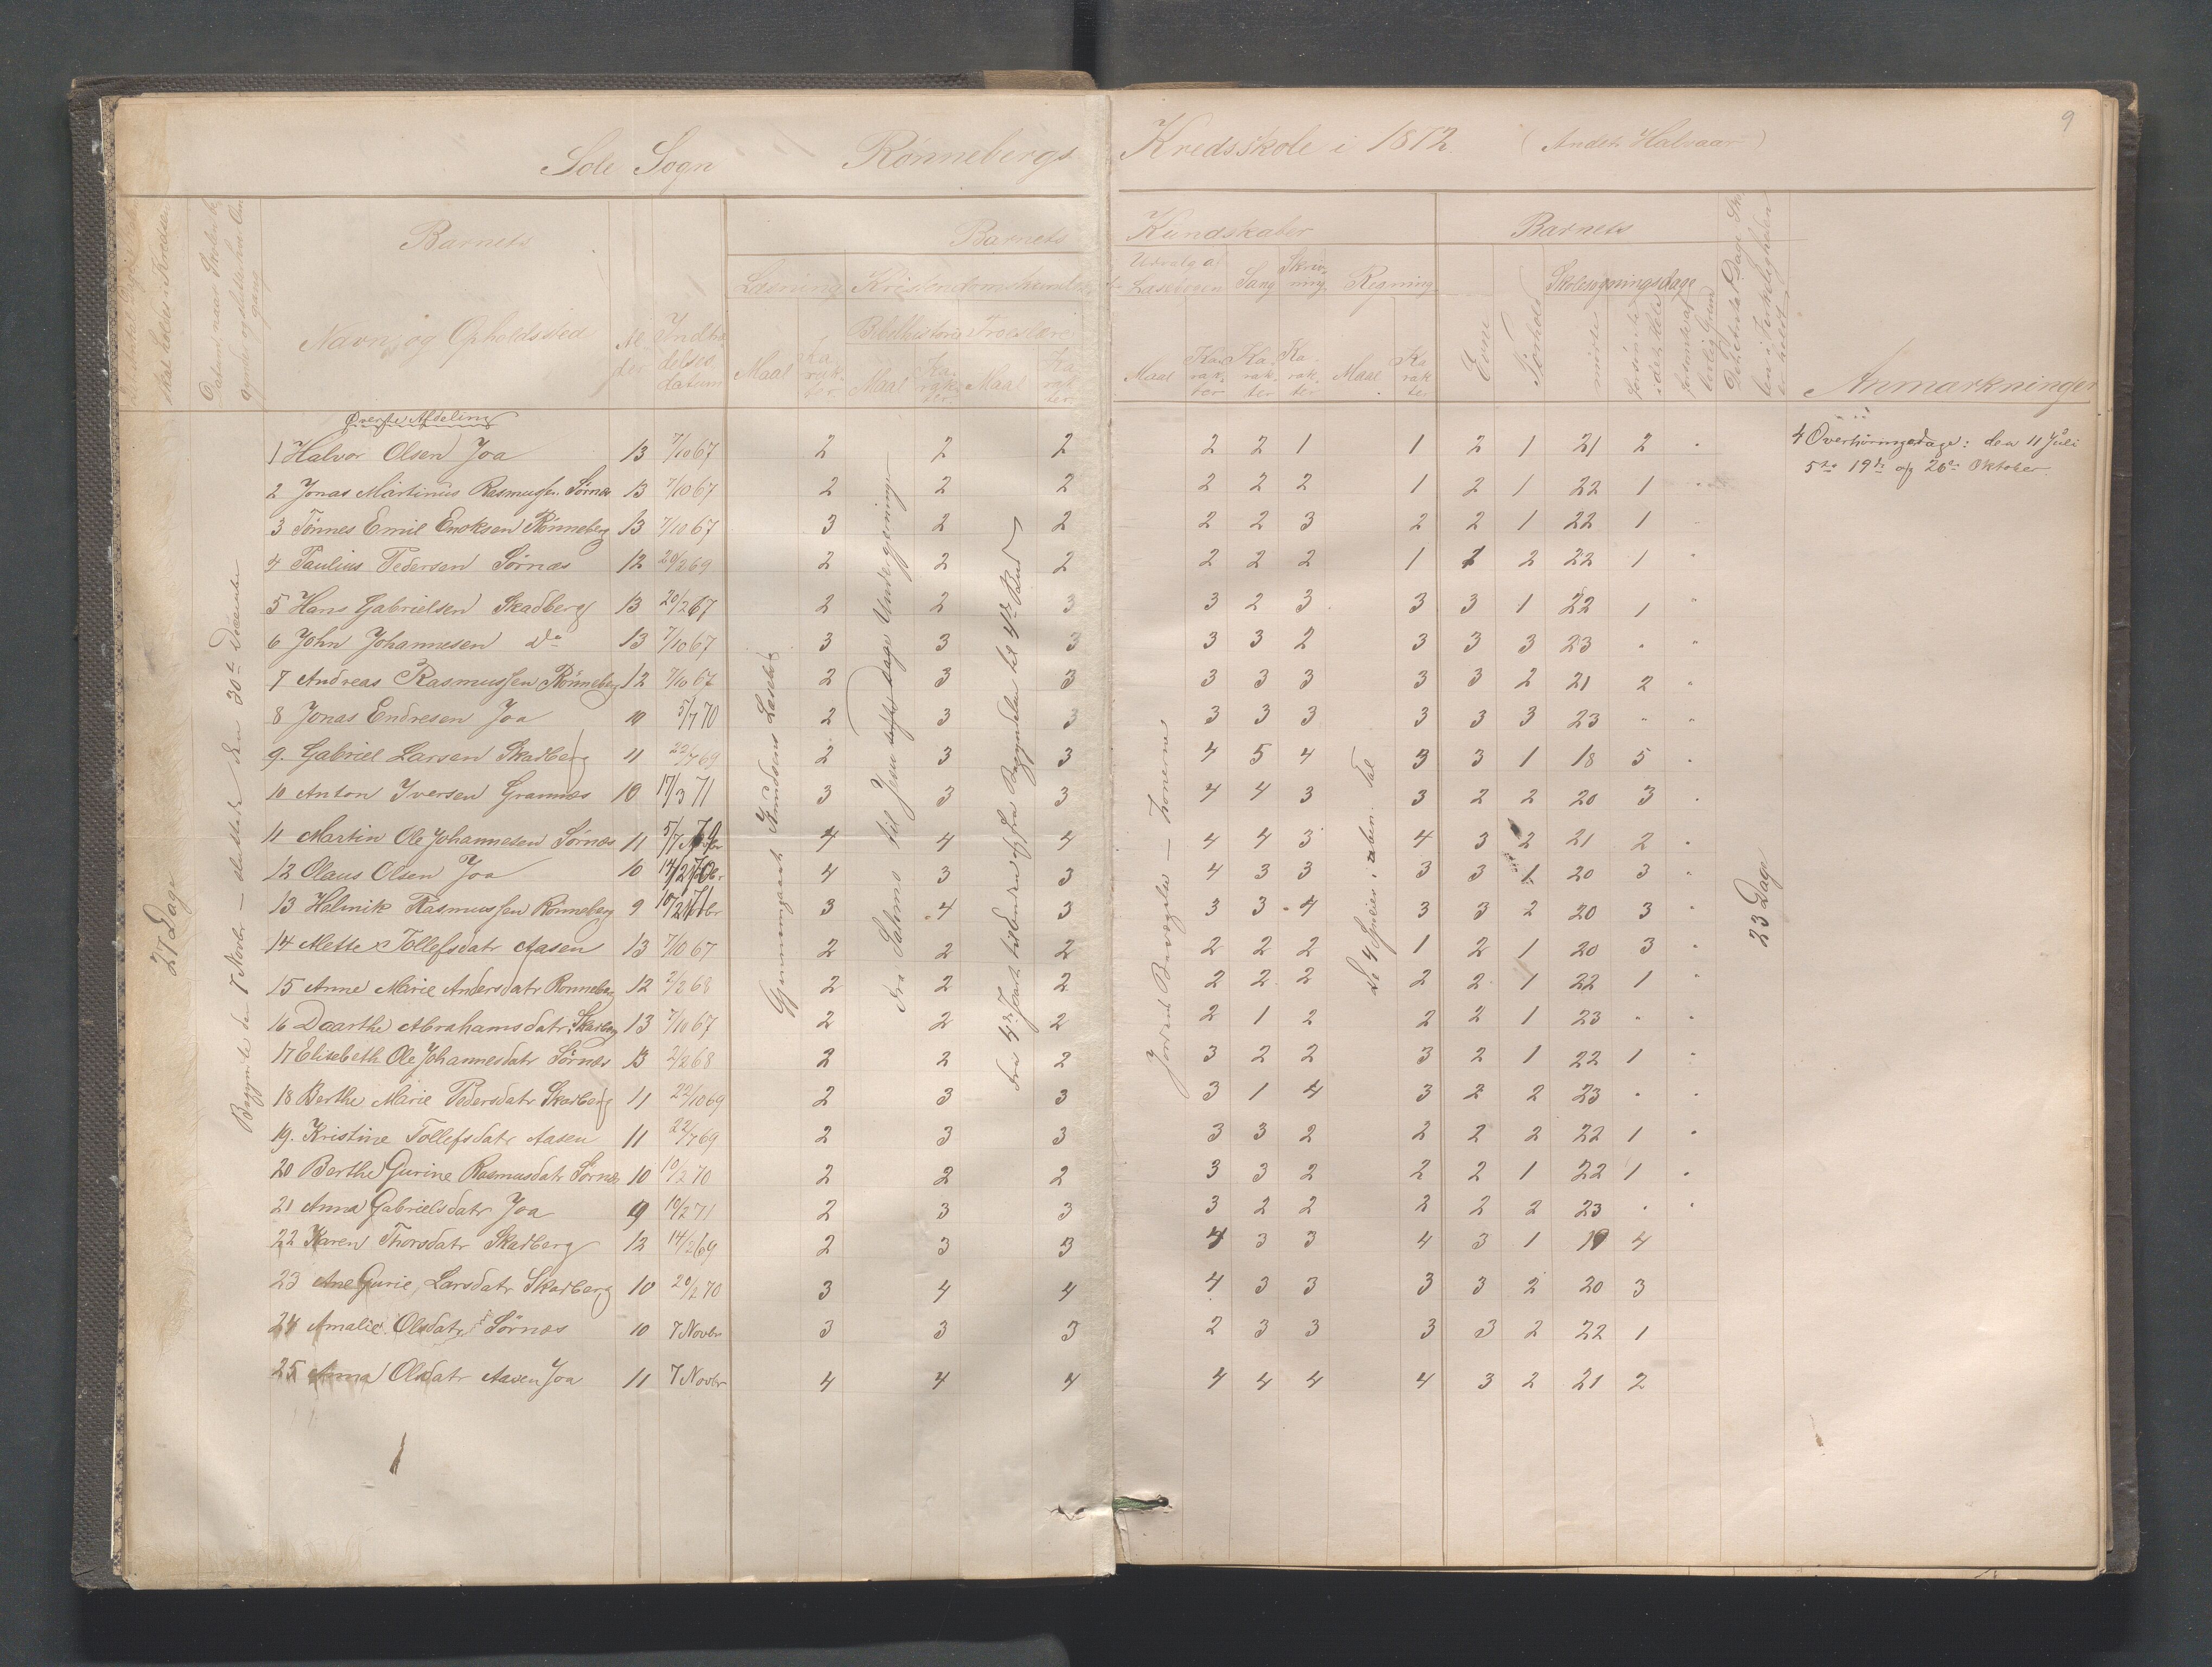 9
Sole Sogn Rönnebergs Kredsskole i 1872. (Andet Halvaar)
Barnets Barnets Kundskaber Barnets
Læsning Kristendomskundskab Udvalg af Læsebogen Sang Skrivning Regning Skolesøgningsdage
Navn og Opholdssted Alder Indtrædelsesdatum Bibelhistorie Troeslære
Maal Karakter Maal Karakter Maal Karakter Maal Karakter Karakter Karakter Maal Karakter Evne Forhold mødte Anmærkninger
Øverste Afdeling
1 Halvor Olsen Joa 13 7/10 67 2 2 2 2 2 1 1 2 1 21 2 "
4 Overhöringsdage: den 11 Juli
5te 19de og 26de Oktober
2 Jonas Martinus Rasmussen Sörnæs 13 7/10 67 2 2 2 2 2 2 1 2 1 22 1 "
3 Tönnes Emil Enoksen Rönneberg 13 7/10 67 3 2 2 2 2 3 2 2 1 22 1 "
4 Paulius Pedersen Sörnæs 12 20/2 69 2 2 2 2 2 2 1 1 2 22 1 "
5 Hans Gabrielsen Skadberg 13 20/2 67 2 2 3 3 2 3 3 3 1 22 1 "
6 John Johannesen do 13 7/10 67 3 3 3 3 3 2 3 3 3 23 " "
7 Andreas Rasmussen Rönneberg 12 7/10 67 2 3 3 3 3 3 3 3 2 21 2 "
8 Jonas Endresen Joa 10 5/7 70 2 3 3 3 3 3 3 3 3 23 " "
9. Gabriel Larsen Skadberg 11 22/7 69 2 3 3 4 5 4 3 3 1 18 5 "
10 Anton Iversen Grannæs 10 17/3 71 3 3 3 4 4 3 3 2 2 20 3 "
11 Martin Ole Johannesen Sörnæs 11 5/7 69 4 4 4 4 4 3 4 3 2 21 2 "
12 Olaus Olsen Joa 10 14/2 70 4 3 3 4 3 3 3 3 1 20 3 "
13 Helmik Rasmussen Rönneberg 9 10/2 71 3 4 3 3 3 4 3 3 2 20 3 "
14 Mette Tollefsdatr Aasen 13 7/10 67 2 2 2 2 2 2 1 2 1 20 3 "
15 Anne Marie Andersdatr Rönneberg 12 2/2 68 2 2 2 2 2 2 2 2 1 22 1 "
16 Daarthe Abrahamsdatr Skadberg 13 7/10 67 2 2 2 2 1 2 2 2 1 23 " "
17 Elisebeth Ole Johannesdatr Sörnæs 13 2/2 68 2 2 2 3 2 2 3 2 1 22 1 "
18 Berthe Marie Pedersdatr Skadberg 11 22/10 69 2 3 3 3 1 4 3 2 2 23 " "
19. Kristine Tollefsdatr Aasen 11 22/7 69 2 3 3 3 3 2 2 2 2 22 1 "
20 Berthe Gurine Rasmusdatr Sörnæs 10 10/2 70 2 2 2 3 3 2 2 2 1 22 1 "
21 Anna Gabrielsdatr Joa 9 10/2 71 2 3 3 3 2 2 2 2 2 23 " "
22 Karen Thorsdatr Skadberg 12 14/2 69 2 3 3 4 3 3 4 3 1 19 4
23 Ane Gurie Larsdatr Skadberg 10 20/2 70 3 4 4 4 3 3 3 3 2 20 3
24 Amalie Olsdatr Sörnæs 10 7 Novbr 3 3 3 2 3 3 3 3 2 22 1
25 Anna Olsdatr Aasen Joa 11 7 Novbr 4 4 4 4 4 4 4 3 2 21 2
27 Dage
Begynte den 7 Novbr — sluttede den 30te December
Gjennemgaaet Knudsens Læsebog
Fra Salomo til Jesu sidste Dage Undergjerninger
Fra 4de Part til Enden og fra Begyndelsen til 4de Bud
Jordens Bevægelse — Zonerne
De 4 Specier i uben. Tal
23 Dage